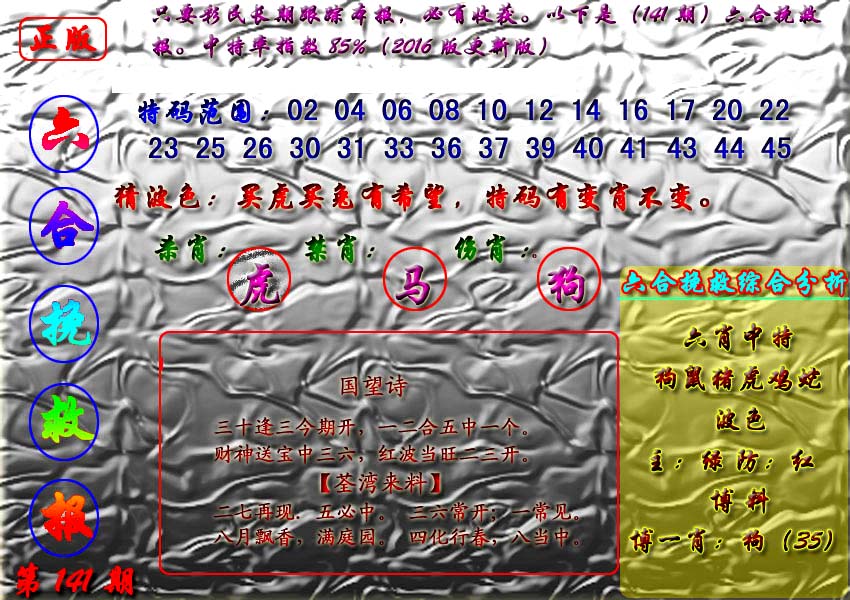 正版
只要彩民长期跟踪本报，必有收获。以下是（141期）六合挽救
报。中特率指数85%（2016版更新版）
特码范围：02 04 06 08 10 12 14 16 17 20 22
23 25 26 30 31 33 36 37 39 40 41 43 44 45
猜波色：买虎买兔有希望，特码有变肖不变。
杀肖：虎 禁肖：马 伤肖：。狗
六合挽救报
第141期
国望诗
三十逢三今期开，一二合五中一个。
财神送宝中三六，红波当旺二三开。
【荃湾来料】
二七再现．五必中。 三六常开；一常见。
八月飘香，满庭园。 四化行春，八当中。
六合挽救综合分析
六肖中特
狗鼠猪虎鸡蛇
波色
主：绿防：红
博料
博一肖：狗（35）